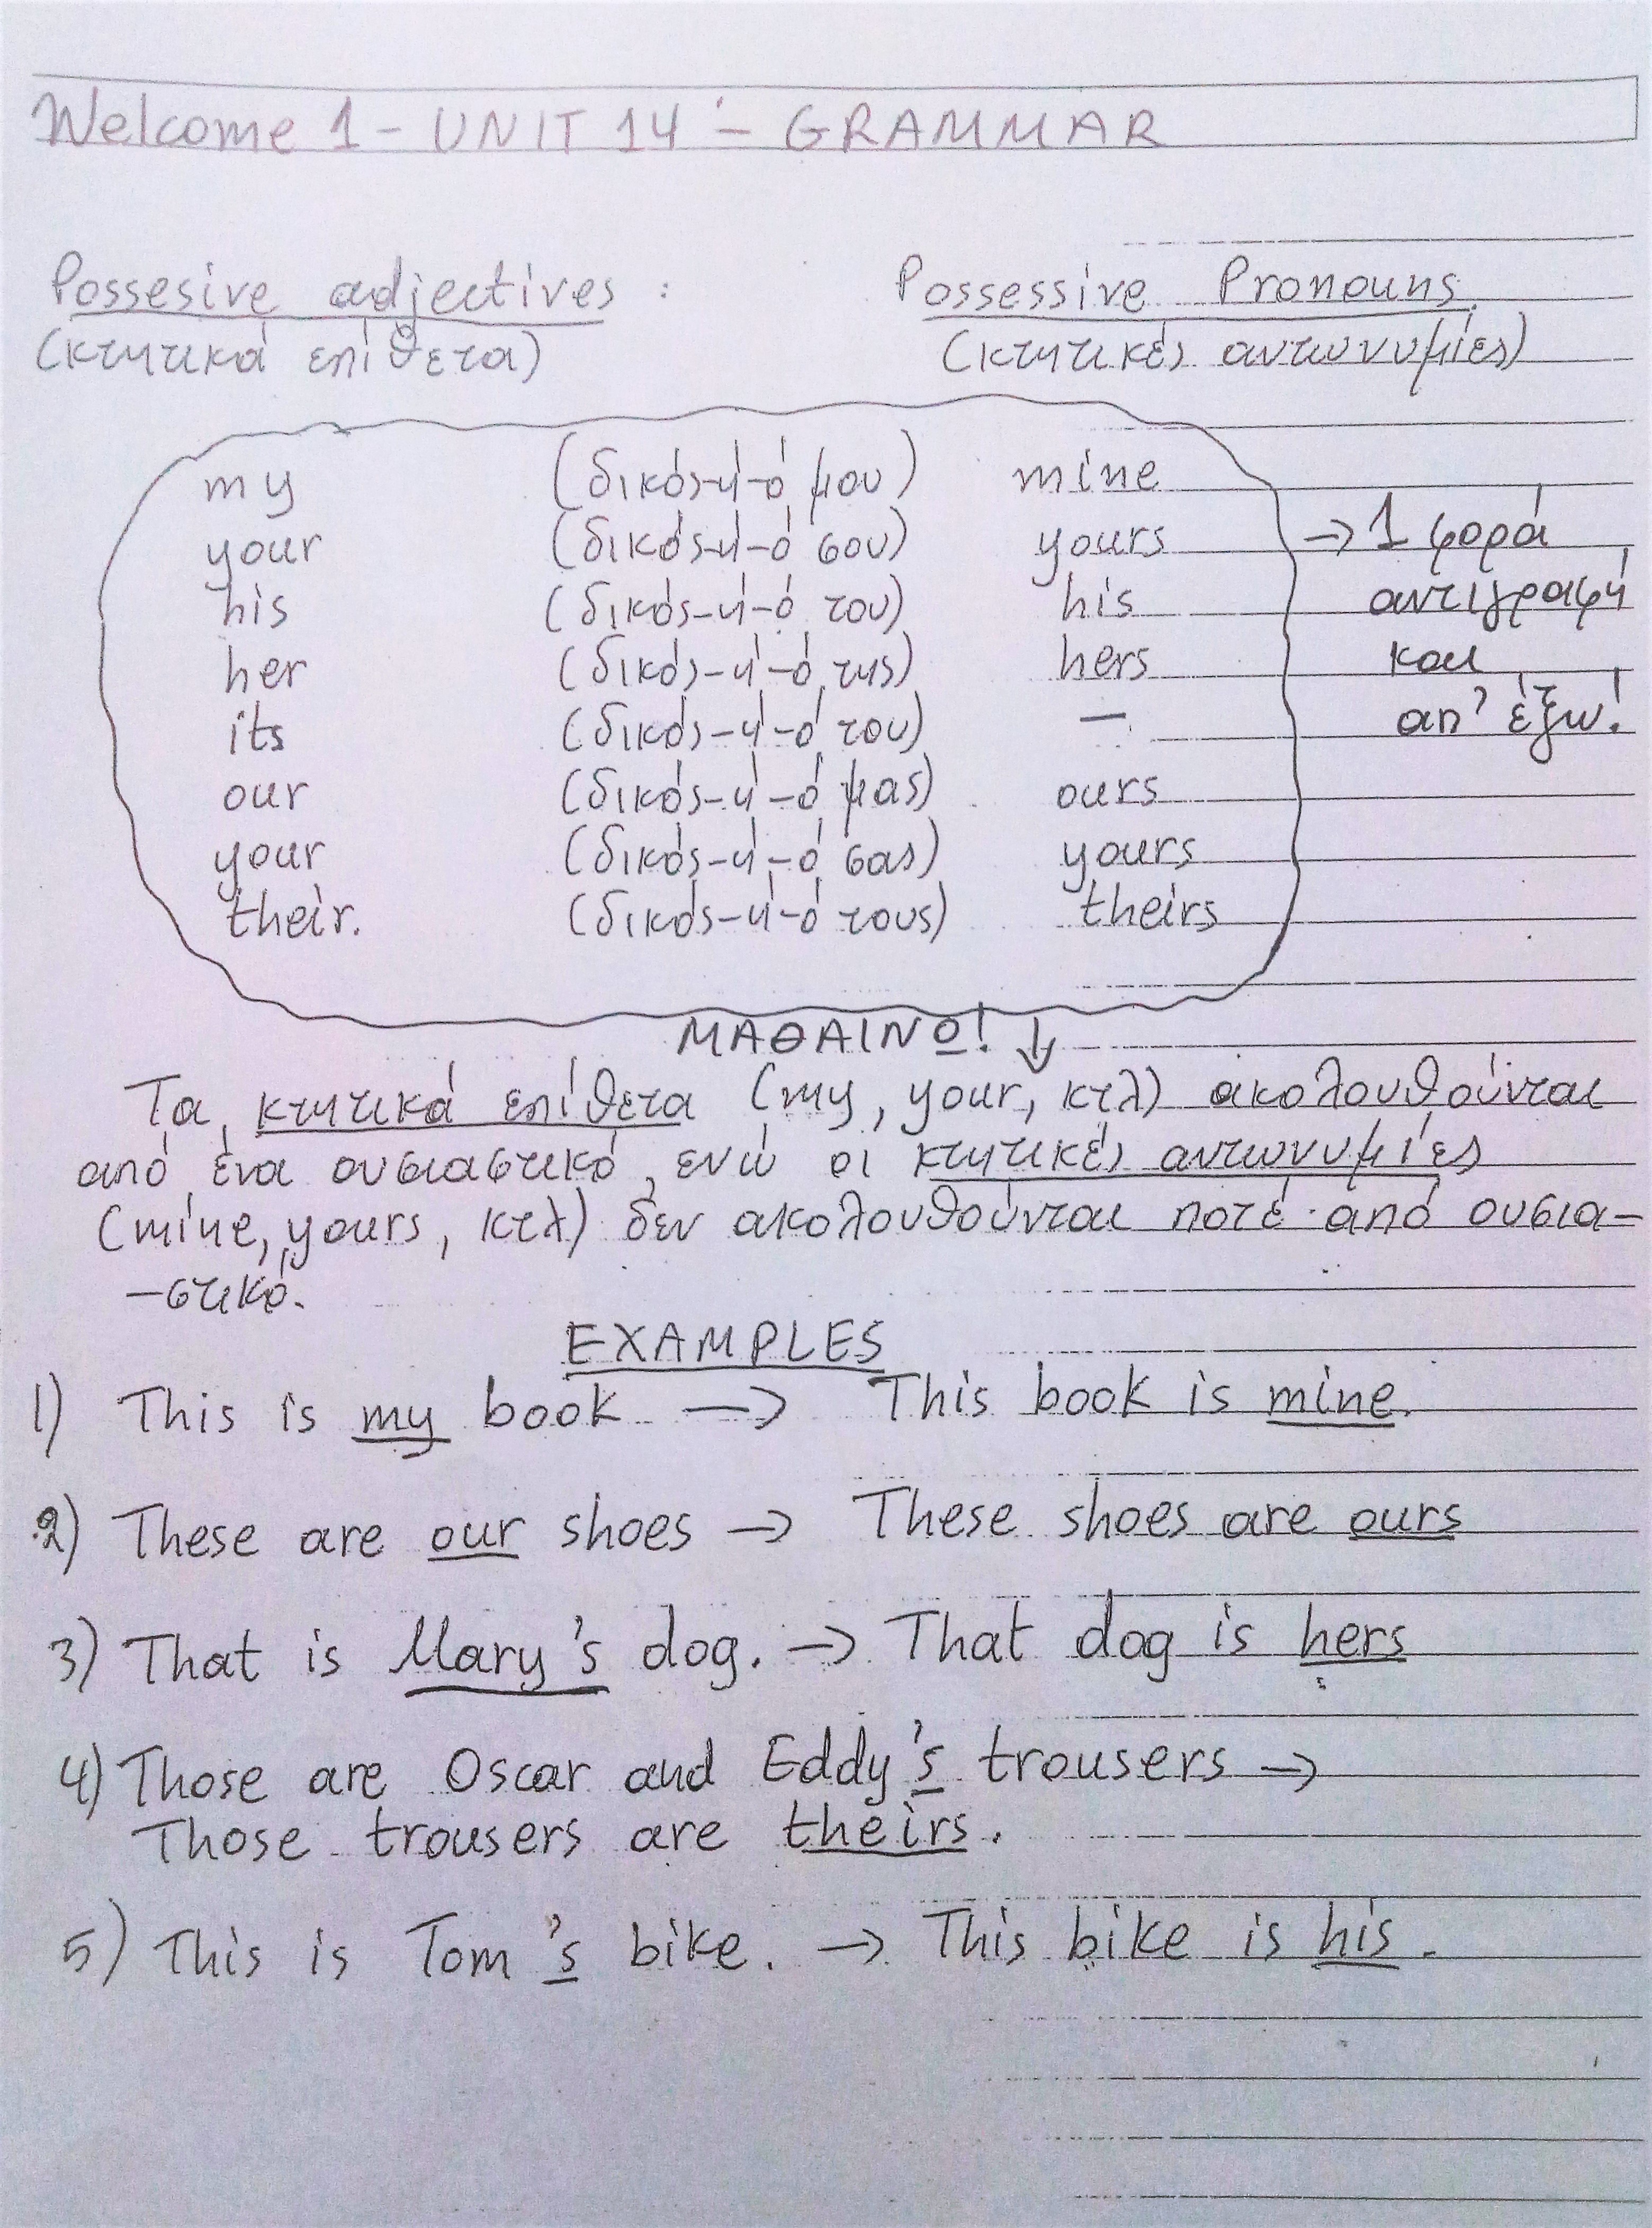 Welcome 1 - UNIT 14 - GRAMMAR
Possesive adjectives : Possessive Pronouns.
(κτητικά επίθετα) (κτητικές αντωνυμίες)
my (δικός-ή-ό μου) mine
your (δικός-ή-ό σου) yours → 1 φορά
his (δικός-ή-ό του) his αντιγραφή
her (δικός-ή-ό της) hers και
its (δικός-ή-ό του) — απ' έξω!
our (δικός-ή-ό μας) ours
your (δικός-ή-ό σας) yours
their. (δικός-ή-ό τους) theirs
ΜΑΘΑΙΝΩ! ↓
Τα κτητικά επίθετα (my, your, κτλ) ακολουθούνται
από ένα ουσιαστικό, ενώ οι κτητικές αντωνυμίες
(mine, yours, κτλ) δεν ακολουθούνται ποτέ από ουσια-
-στικό.
EXAMPLES
1) This is my book → This book is mine.
2) These are our shoes → These shoes are ours
3) That is Mary's dog. → That dog is hers
4) Those are Oscar and Eddy's trousers →
Those trousers are theirs.
5) This is Tom's bike. → This bike is his.